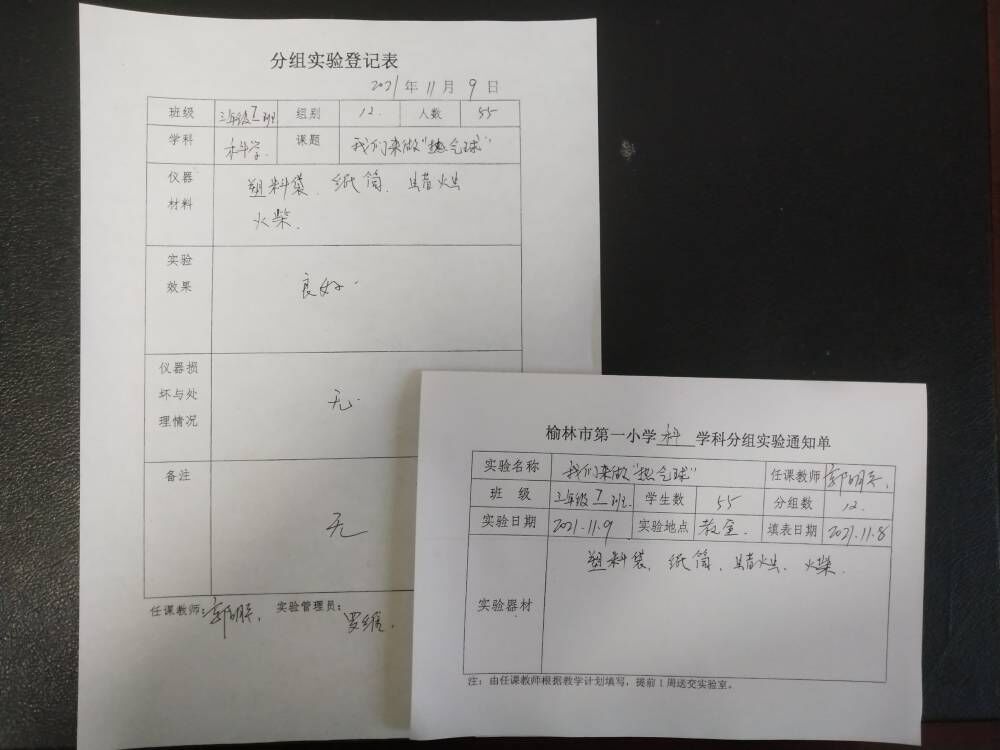 分组实验登记表
2021年11月9日
班级 三年级7班 组别 12. 人数 55
学科 科学. 课题 我们来做"热气球"
仪器材料 塑料袋、纸筒、蜡烛
火柴.
实验效果 良好.
仪器损坏与处理情况 无.
备注 无
任课教师: 实验管理员:
榆林市第一小学科学科分组实验通知单
实验名称 我们来做"热气球" 任课教师
班级 三年级7班 学生数 55 分组数 12.
实验日期 2021.11.9 实验地点 教室. 填表日期 2021.11.8
实验器材 塑料袋、纸筒、蜡烛、火柴.
注:由任课教师根据教学计划填写,提前1周送交实验室。